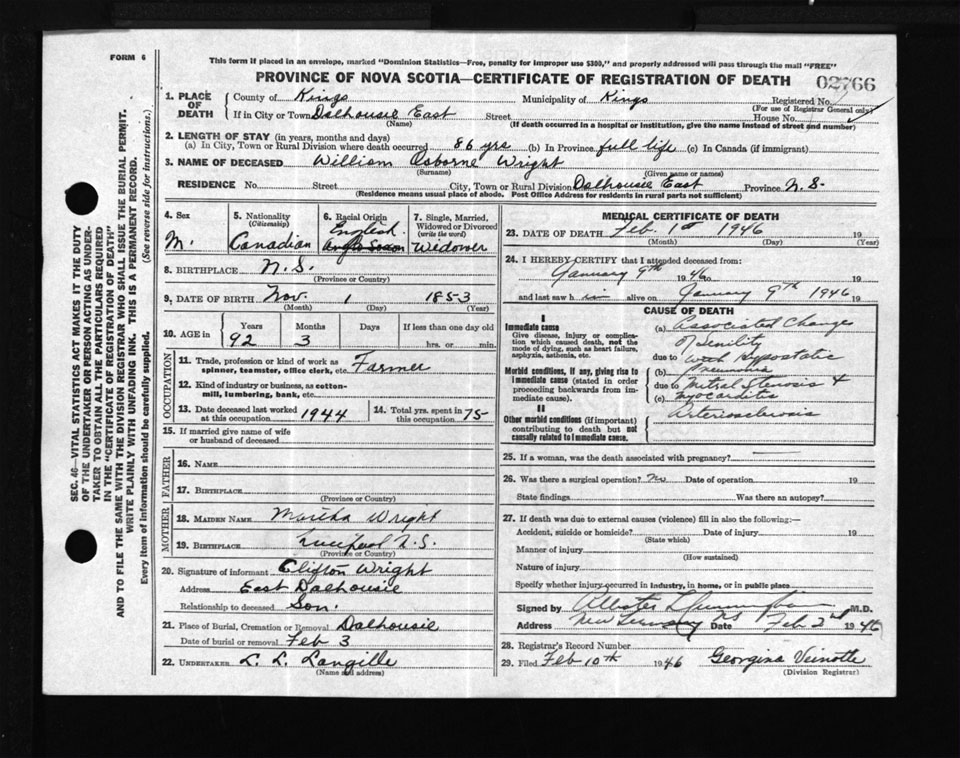 FORM 6
This form if placed in an envelope, marked "Dominion Statistics—Free, penalty for improper use $300," and properly addressed will pass through the mail "FREE"
PROVINCE OF NOVA SCOTIA—CERTIFICATE OF REGISTRATION OF DEATH
02766
SEC. 46—VITAL STATISTICS ACT MAKES IT THE DUTY
OF THE UNDERTAKER OR PERSON ACTING AS UNDER-
TAKER TO OBTAIN ALL THE PARTICULARS REQUIRED
IN THE "CERTIFICATE OF REGISTRATION OF DEATH"
AND TO FILE THE SAME WITH THE DIVISION REGISTRAR WHO SHALL ISSUE THE BURIAL PERMIT.
WRITE PLAINLY WITH UNFADING INK. THIS IS A PERMANENT RECORD.
Every item of information should be carefully supplied. (See reverse side for instructions.)
1. PLACE OF DEATH
County of Kings Municipality of Kings Registered No.
(For use of Registrar General only)
If in City or Town Dalhousie East Street House No.
(Name) (If death occurred in a hospital or institution, give the name instead of street and number)
2. LENGTH OF STAY (in years, months and days)
(a) In City, Town or Rural Division where death occurred 86 yrs (b) In Province full life (c) In Canada (if immigrant)
3. NAME OF DECEASED William Osborne Wright
(Surname) (Given name or names)
RESIDENCE No. Street City, Town or Rural Division Dalhousie East Province N.S.
(Residence means usual place of abode. Post Office Address for residents in rural parts not sufficient)
4. Sex M.
5. Nationality (Citizenship) Canadian
6. Racial Origin English Anglo Saxon
7. Single, Married, Widowed or Divorced (write the word) Widower
8. BIRTHPLACE N.S.
(Province or Country)
9. DATE OF BIRTH Nov. 1 1853
(Month) (Day) (Year)
10. AGE in Years Months Days If less than one day old
92 3 hrs. or min.
OCCUPATION
11. Trade, profession or kind of work as spinner, teamster, office clerk, etc. Farmer
12. Kind of industry or business, as cotton-mill, lumbering, bank, etc.
13. Date deceased last worked at this occupation 1944
14. Total yrs. spent in this occupation 75
15. If married give name of wife or husband of deceased
FATHER
16. NAME
17. BIRTHPLACE
(Province or Country)
MOTHER
18. MAIDEN NAME Martha Wright
19. BIRTHPLACE Liverpool N.S.
(Province or Country)
20. Signature of informant Clifton Wright
Address East Dalhousie
Relationship to deceased Son.
21. Place of Burial, Cremation or Removal Dalhousie
Date of burial or removal Feb 3
22. UNDERTAKER L. L. Langille
(Name and address)
MEDICAL CERTIFICATE OF DEATH
23. DATE OF DEATH Feb. 1st 1946 19
(Month) (Day) (Year)
24. I HEREBY CERTIFY that I attended deceased from:
January 9th 1946 to 19
and last saw h im alive on January 9th 1946 19
CAUSE OF DEATH
I
Immediate cause
Give disease, injury or complication which caused death, not the mode of dying, such as heart failure, asphyxia, asthenia, etc.
Morbid conditions, if any, giving rise to immediate cause (stated in order proceeding backwards from immediate cause).
II
Other morbid conditions (if important) contributing to death but not causally related to immediate cause.
(a) Associated Changes
of Senility
due to with Hypostatic
(b) Pneumonia
due to Mitral Stenosis &
(c) Myocarditis
Arteriosclerosis
25. If a woman, was the death associated with pregnancy?
26. Was there a surgical operation? No Date of operation 19
State findings Was there an autopsy?
27. If death was due to external causes (violence) fill in also the following:—
Accident, suicide or homicide? Date of injury 19
(State which)
Manner of injury
(How sustained)
Nature of injury
Specify whether injury occurred in industry, in home, or in public place
Signed by M.D.
Address New NS Date Feb 2nd 1946
28. Registrar's Record Number
29. Filed Feb 10th 1946 Georgina Veinotte
(Division Registrar)